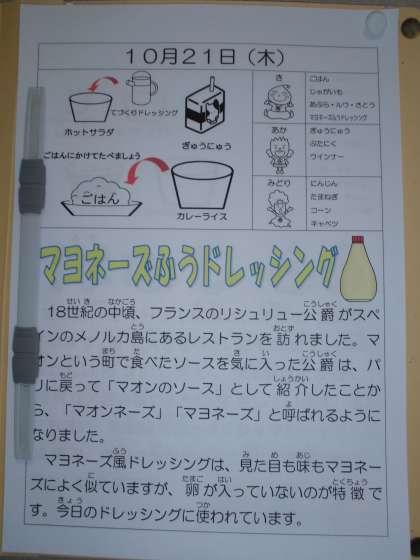 10月21日（木）
てづくりドレッシング
ホットサラダ
ぎゅうにゅう
ごはんにかけてたべましょう
ごはん
カレーライス
き
ごはん
じゃがいも
あぶら・ルウ・さとう
マヨネーズふうドレッシング
あか
ぎゅうにゅう
ぶたにく
ウインナー
みどり
にんじん
たまねぎ
コーン
キャベツ
マヨネーズふうドレッシング
せいき なかごろ こうしゃく
18世紀の中頃、フランスのリシュリュー公爵がスペ
とう おとず
インのメノルカ島にあるレストランを訪れました。マ
まち た き い こうしゃく
オンという町で食べたソースを気に入った公爵は、パ
もど しょうかい
リに戻って「マオンのソース」として紹介したことか
よ
ら、「マオンネーズ」「マヨネーズ」と呼ばれるように
なりました。
ふう み め あじ
マヨネーズ風ドレッシングは、見た目も味もマヨネー
に たまご はい とくちょう
ズによく似ていますが、卵が入っていないのが特徴で
きょう つか
す。今日のドレッシングに使われています。